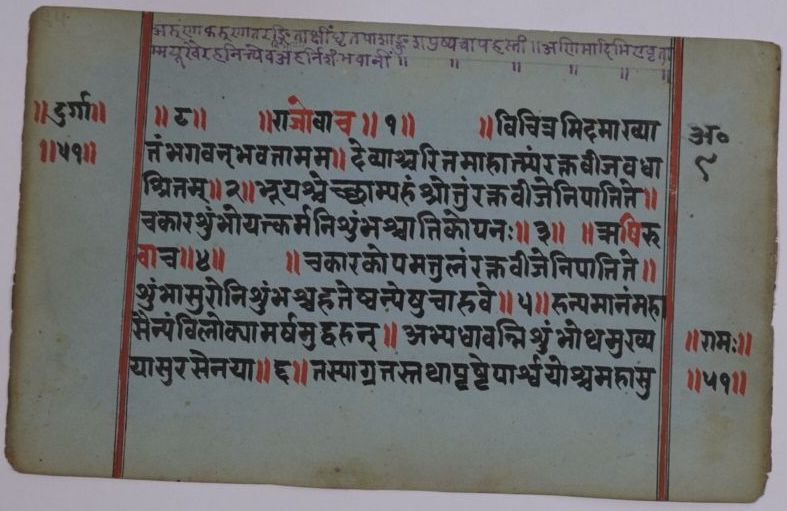 अरुणां करुणातरङ्गिताक्षीं धृतपाशाङ्कुशपुष्पबाणहस्तां ॥ अणिमादिभिरावृतां
मयूखैरहमित्येव
॥ दुर्गा ॥
॥ ५१ ॥
॥ ८ ॥ ॥ राजोवाच ॥ १ ॥ ॥ विचित्रमिदमाख्या
तंभगवन्भवतामम ॥ देव्याश्चरितमाहात्म्यंरक्तबीजवधा
श्रितम् ॥ २ ॥ भूयश्चेच्छाम्यहंश्रोतुंरक्तबीजेनिपातिते ॥
चकारशुंभोयत्कर्मनिशुंभश्चातिकोपनः ॥ ३ ॥ ॥ ऋषिरु
वाच ॥ ४ ॥ ॥ चकारकोपमतुलंरक्तबीजेनिपातिते ॥
शुंभासुरोनिशुंभश्चहतेष्वन्येषुचाहवे ॥ ५ ॥ हन्यमानंमहा
सैन्यंविलोक्यामर्षमुद्वहन् ॥ अभ्यधावन्निशुंभोथमुख्य
यासुरसेनया ॥ ६ ॥ तस्याग्रतस्तथापृष्ठेपार्श्वयोश्चमहासु
अ०
९
॥ रामः ॥
॥ ५१ ॥